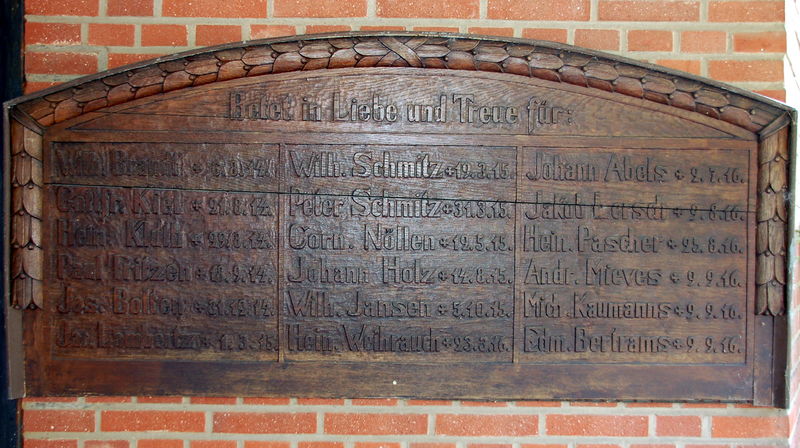 Betet in Liebe und Treue für:
Wilh. Brandt + 6.8.14.
Gottfr. Kiel + 21.8.14.
Hein. Kluth + 29.8.14.
Paul Fritzen + 18.9.14.
Jos. Bolten + 31.12.14.
Jos. Lambertz + 1.3.15.
Wilh. Schmitz + 19.3.15.
Peter Schmitz + 31.3.15.
Corn. Nöllen + 19.5.15.
Johann Holz + 14.8.15.
Wilh. Jansen + 5.10.15.
Hein. Weihrauch + 23.3.16.
Johann Abels + 2.7.16.
Jakob Lersch + 9.8.16.
Hein. Pascher + 25.8.16.
Andr. Mieves + 9.9.16.
Mich. Kaumanns + 9.9.16.
Edm. Bertrams + 9.9.16.